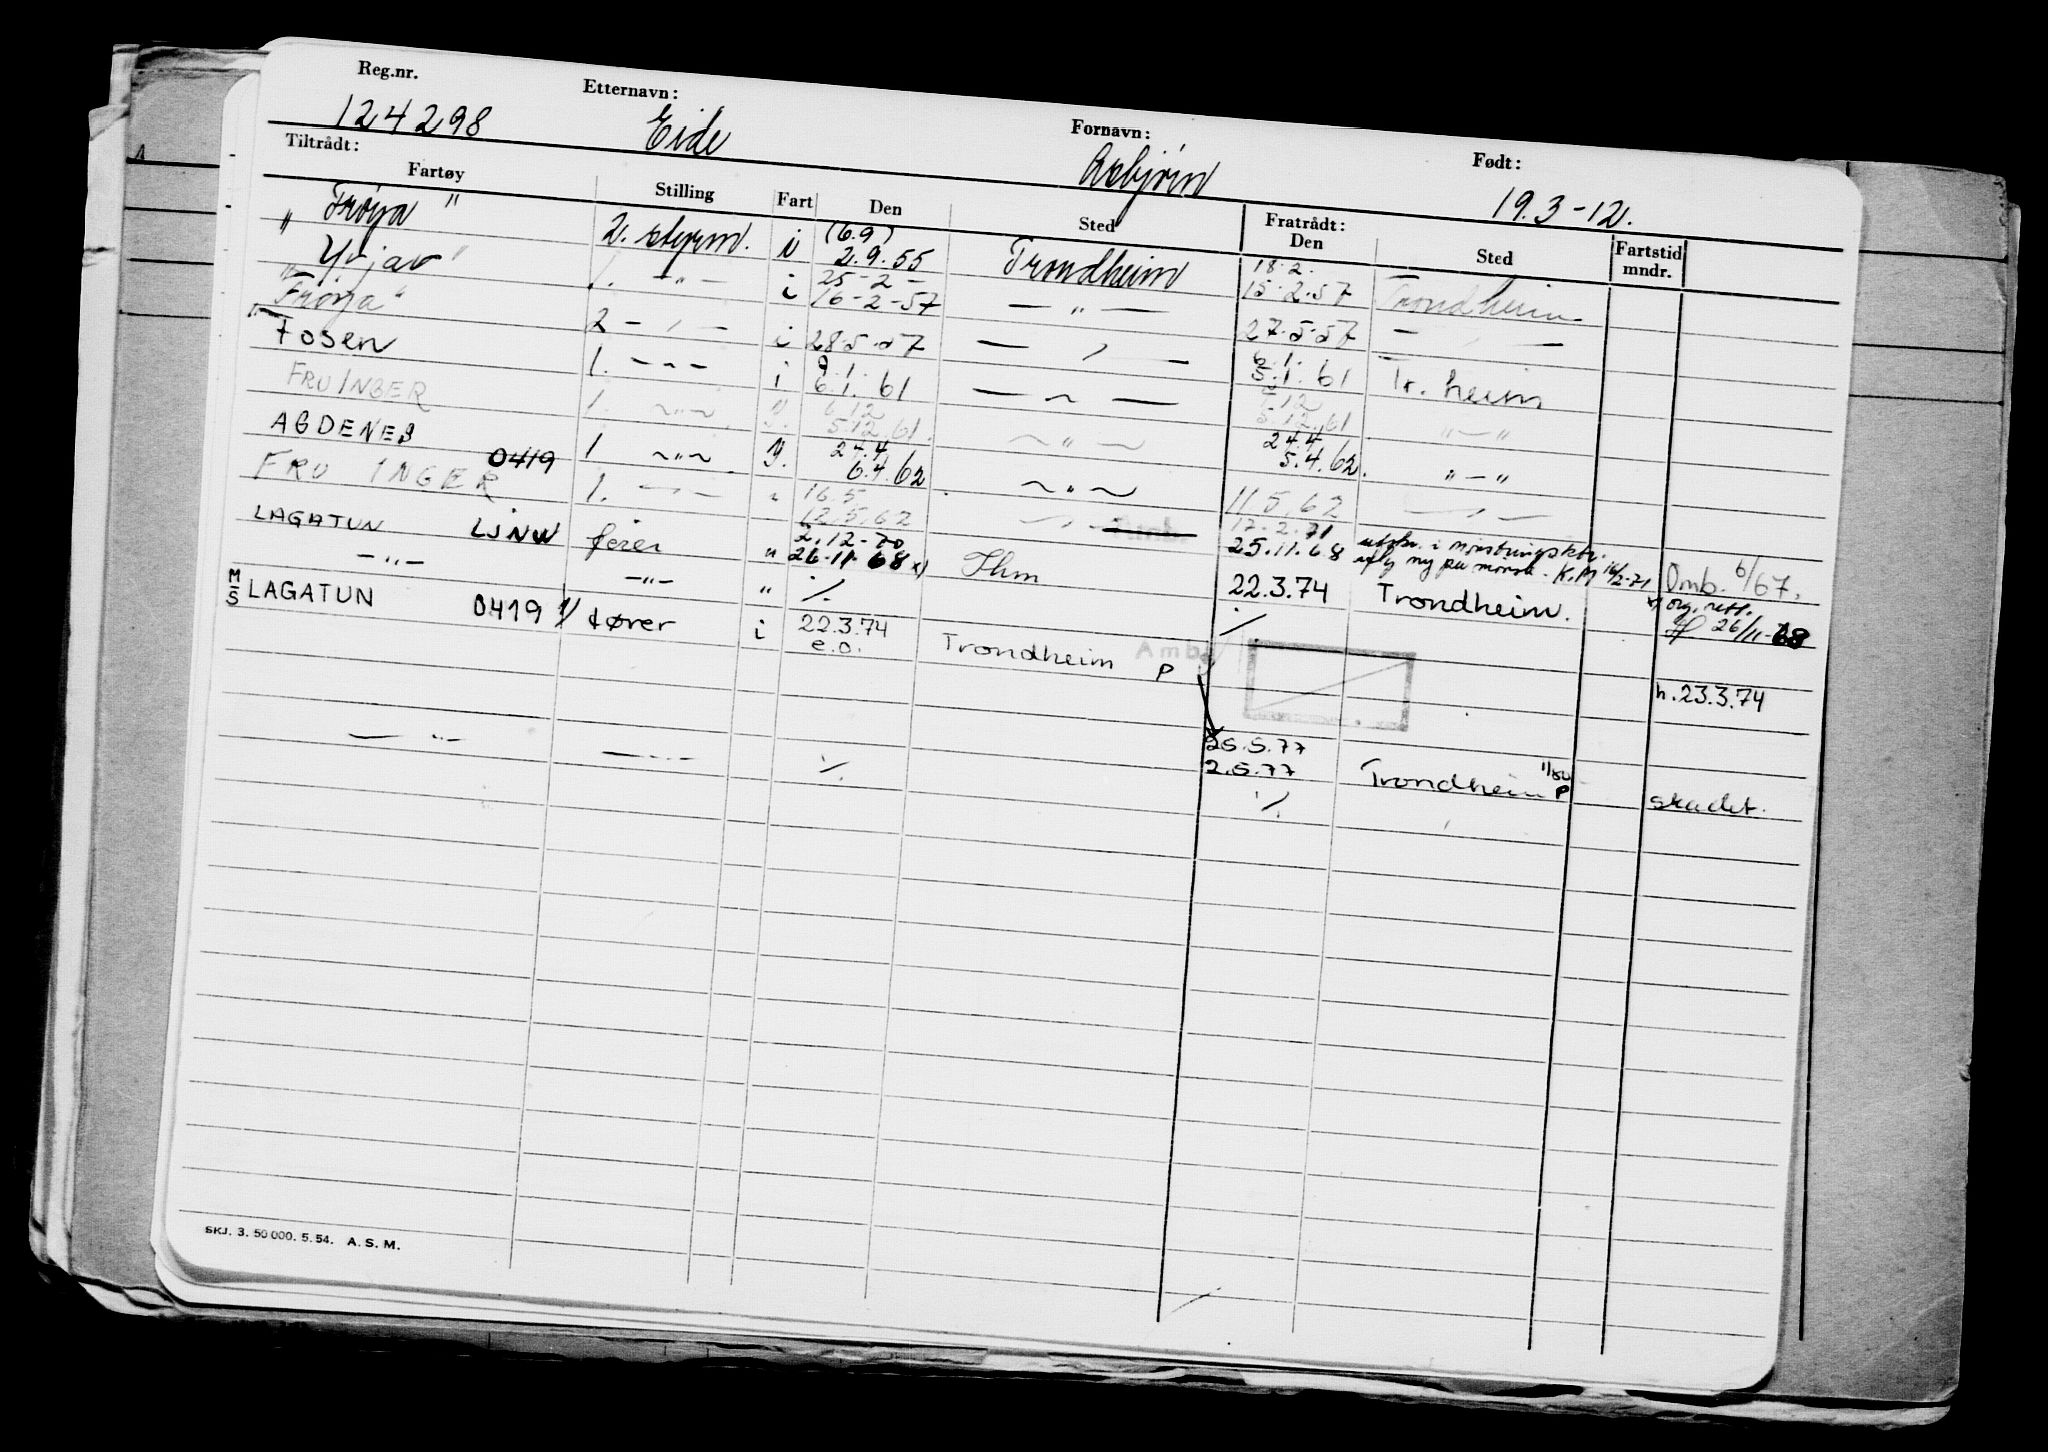 Reg.nr. Etternavn: Fornavn: Født:
124298 Eide Asbjörn 19.3-12.
Tiltrådt: Fratrådt:
Fartøy Stilling Fart Den Sted Den Sted Fartstid mndr.
(6.9) 18.2.
" Frøya " 2. styrm. i 2.9.55 Trondheim 15.2.57 Trondheim
25-2-
" Yrjar " 1. -"- i 16-2-57 — " — 27-5-57 —
"Frøya" 2 - , - i 28.5.57 — , — 5.1.61 Tr.heim
9.1. 6.1.
Fosen 1. -"- i 6.1.61 — " — 5.12.61 "—"
6.12 5.12
FRU INGER 1. ~"~ 5.12.61. ~"~ 5.4.62. "—"
24.4 24.4
AGDENES 1 ~"~ 6.4.62 ~"~ 11.5.62
16.5 17-2-71
FRU INGER 0419 1. " 12.5.62 25.11.68 i mønstringsktr. Omb. 6/67.
2.12-70 ny på mønstr. K.M 16/2-71
LAGATUN LJNW fører " 26-11-68 x) Thm 22.3.74 Trondheim. x) org. rett. 26/11-68
-"- -"- " ./. ./.
M/S LAGATUN 0419 fører i 22.3.74 Trondheim P h. 23.3.74
e.o. Amb
25.5.77
2.5.77 Trondheim P skadet.
— " — —"— ./. ./.
SKJ. 3. 50 000. 5. 54. A. S. M.